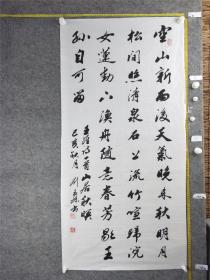 空山新雨後天氣晚来秋明月
松間照清泉石上流竹喧歸浣
女蓮動下漁舟隨意春芳歇王
孫自可留
王維詩一首山居秋暝
己亥秋月